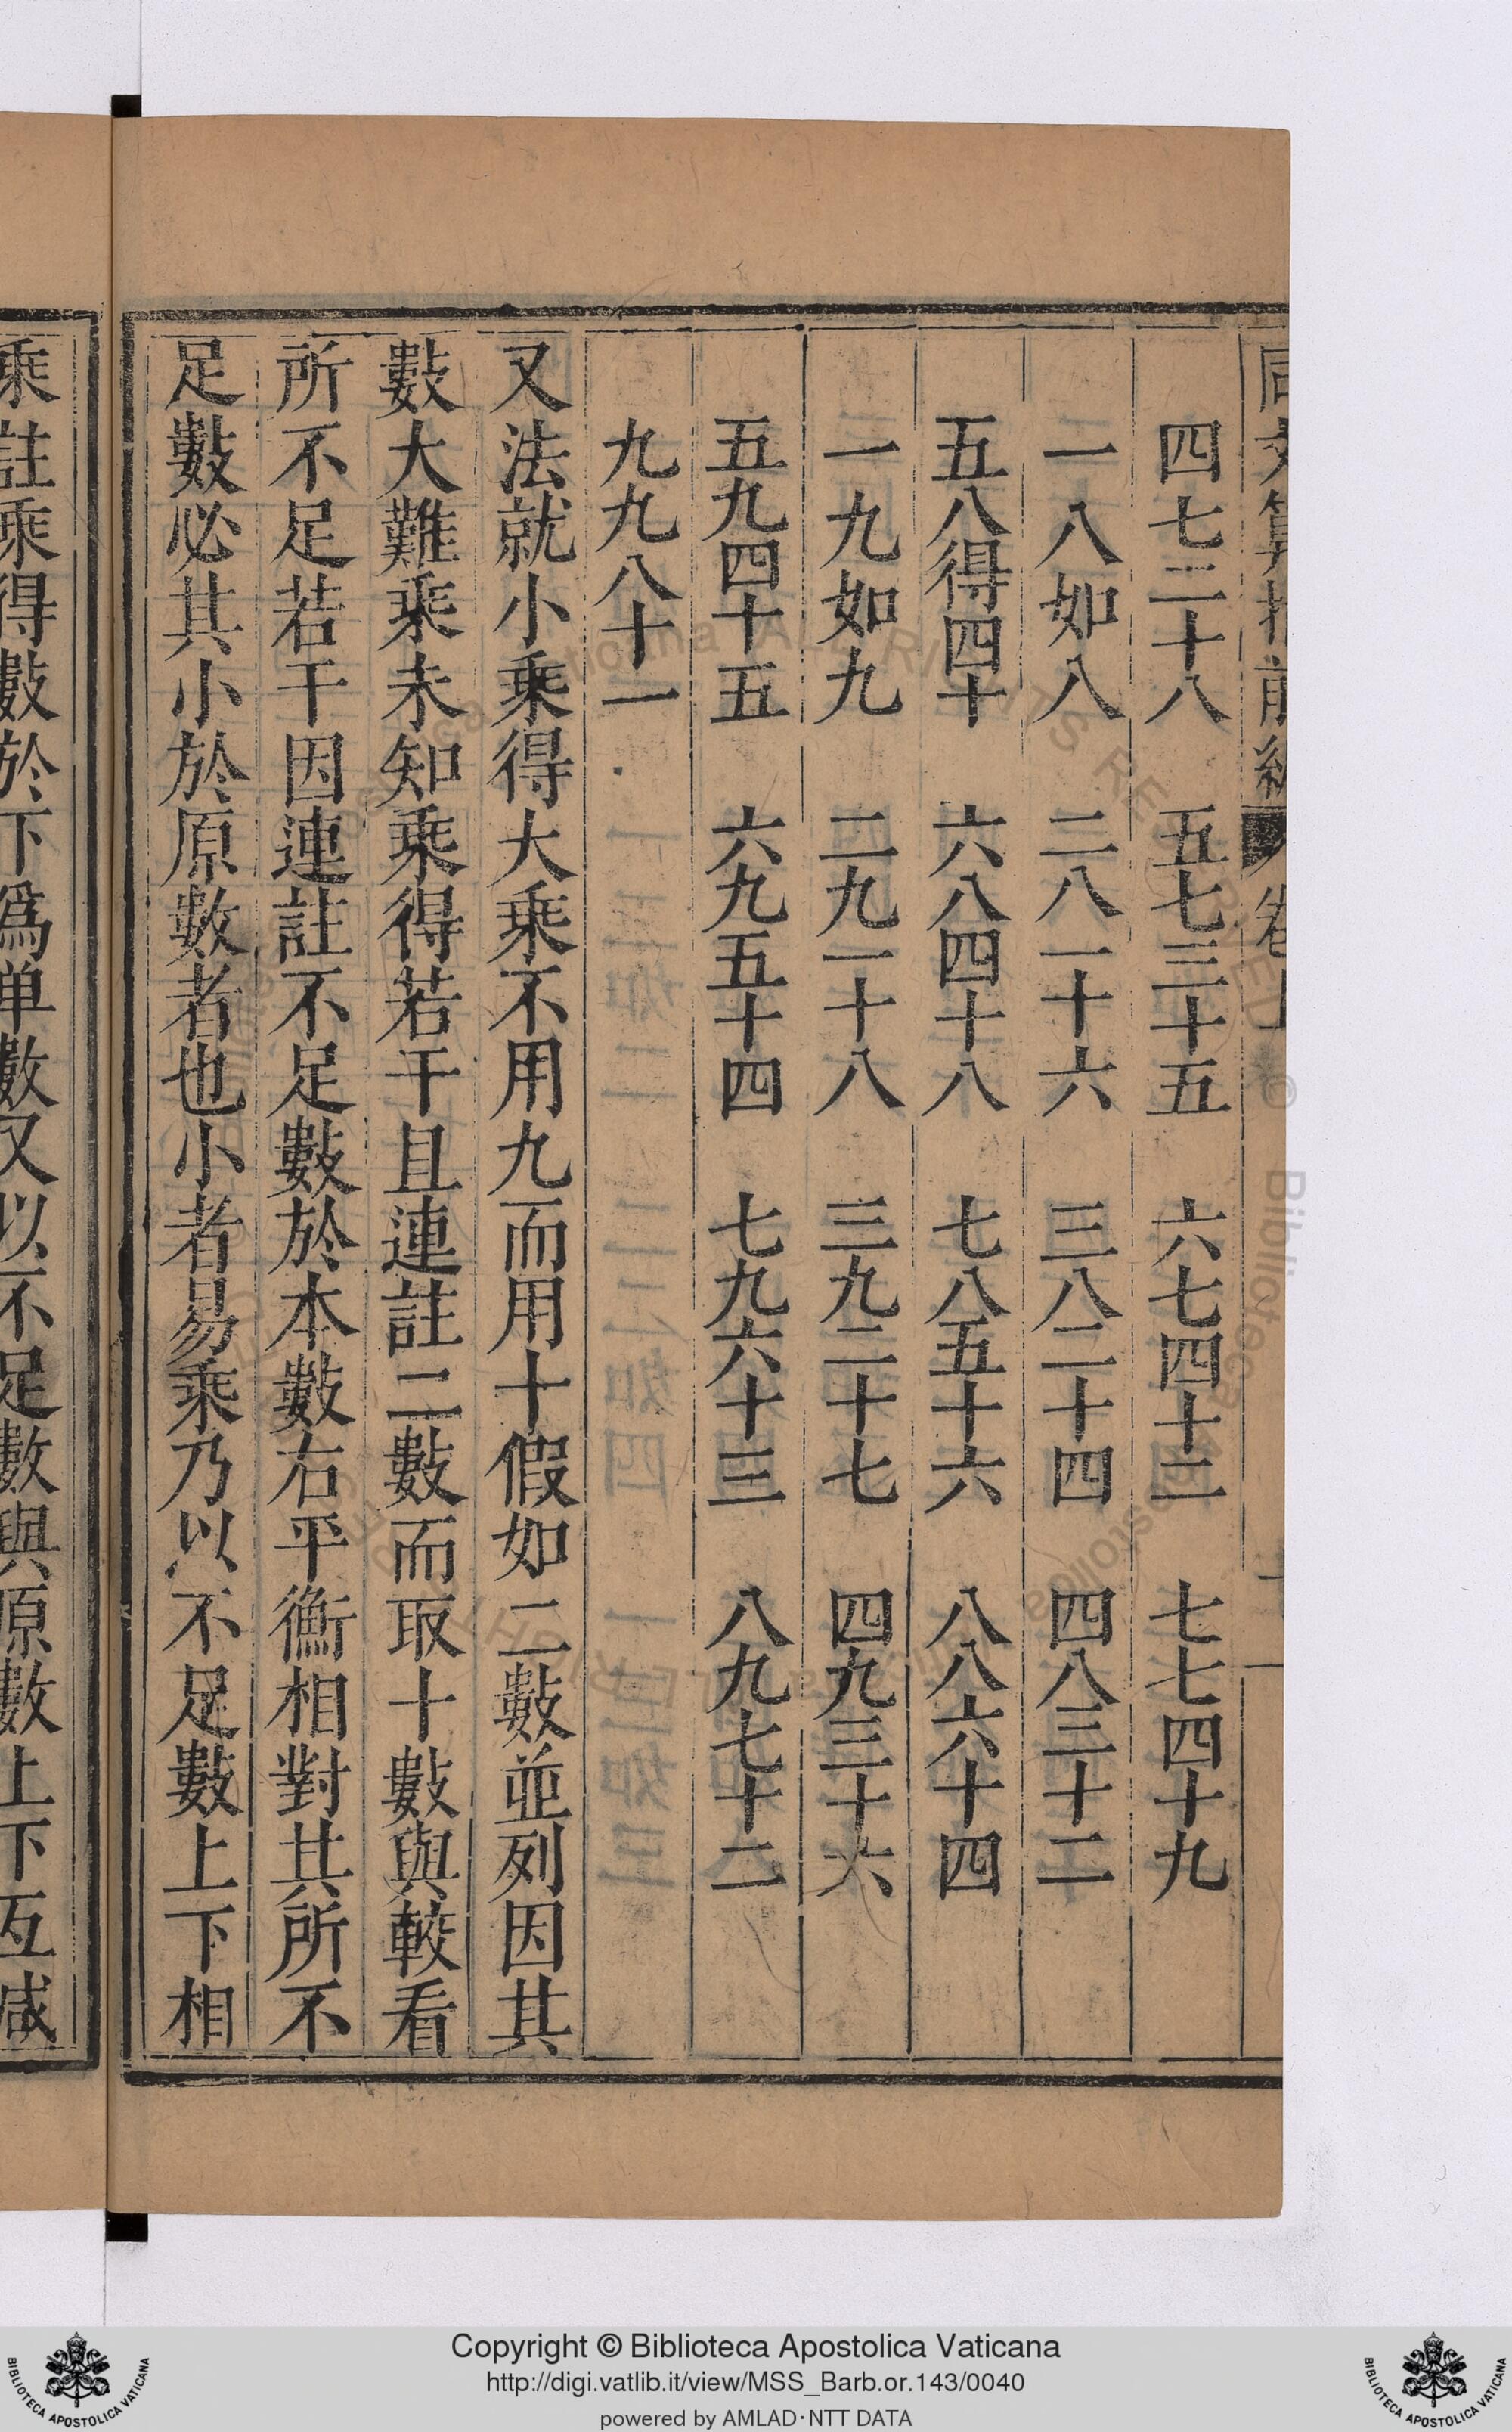 同文算指前編 卷上
四七二十八 五七三十五 六七四十二 七七四十九
一八如八 二八一十六 三八二十四 四八三十二
五八得四十 六八四十八 七八五十六 八八六十四
一九如九 二九一十八 三九二十七 四九三十六
五九四十五 六九五十四 七九六十三 八九七十二
九九八十一
又法就小乘得大乘不用九而用十假如二數並列因其
數大難乘未知乘得若干且連註二數而取十數與較看
所不足若干因連註不足數於本數右平衡相對其所不
足數必其小於原數者也小者易乘乃以不足數上下相
乘註乘得數於下爲单數又以不足數與原數上下互减
Copyright © Biblioteca Apostolica Vaticana
http://digi.vatlib.it/view/MSS_Barb.or.143/0040
powered by AMLAD·NTT DATA
BIBLIOTECA APOSTOLICA VATICANA
BIBLIOTECA APOSTOLICA VATICANA